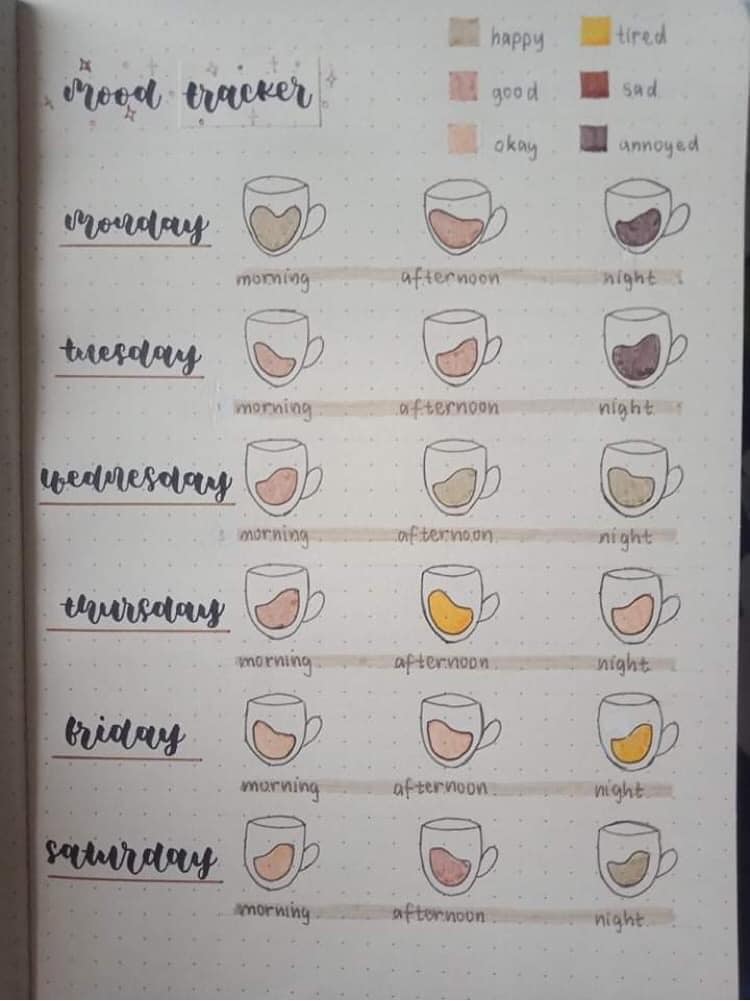 mood tracker
happy tired
good sad
okay annoyed
monday
morning afternoon night
tuesday
morning afternoon night
wednesday
morning afternoon night
thursday
morning afternoon night
friday
morning afternoon night
saturday
morning afternoon night